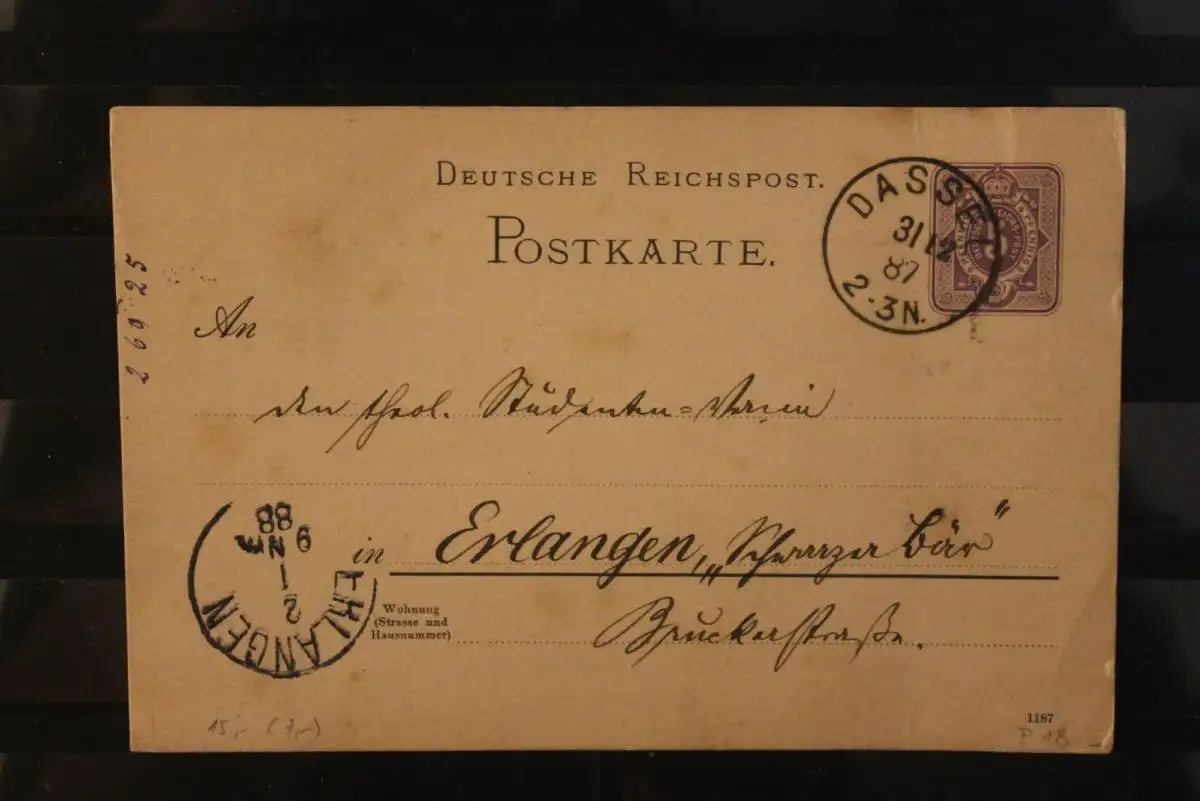 DEUTSCHE REICHSPOST.
POSTKARTE.
DASSEL
31 12
87
2-3N.
2 60 25
An
den theol. Studenten=Verein
in Erlangen, „Schwarzer Bär"
Wohnung
(Strasse und
Hausnummer)
Bruckerstraße.
ERLANGEN
2 1
9 Nm
88
15,- (7,-)
1187
P 18